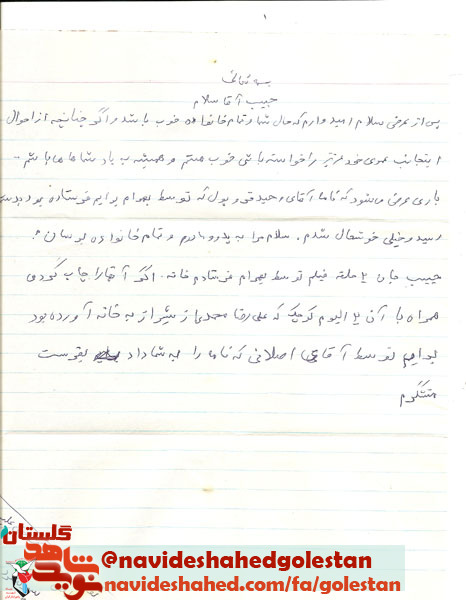 ۱
بسمه تعالی
حبیب آقا سلام
پس از عرض سلام امیدوارم که حال شما و تمام خانواده خوب باشد و اگر چنانچه از احوال
اینجانب عموی خود عزیز را خواسته باشی خوب هستم و همیشه به یاد شماها می باشم..
باری عرض می شود که نامه آقای وحید و پول که توسط بهرام برایم فرستاده بود بدستم
رسید و خیلی خوشحال شدم. سلام مرا به پدر و مادرم و تمام خانواده برسان.
حبیب جان ۲ حلقه فیلم توسط بهرام فرستادم خانه. اگر آنها را چاپ کردی
همراه با آن ۲ البوم کوچک که علی رضا محمدی از شیراز به خانه آورده بود
برایم توسط آقای اصلانی که نامه را به شما داد بفرست
متشکرم
گلستان
نوید شاهد
@navideshahedgolestan
navideshahed.com/fa/golestan